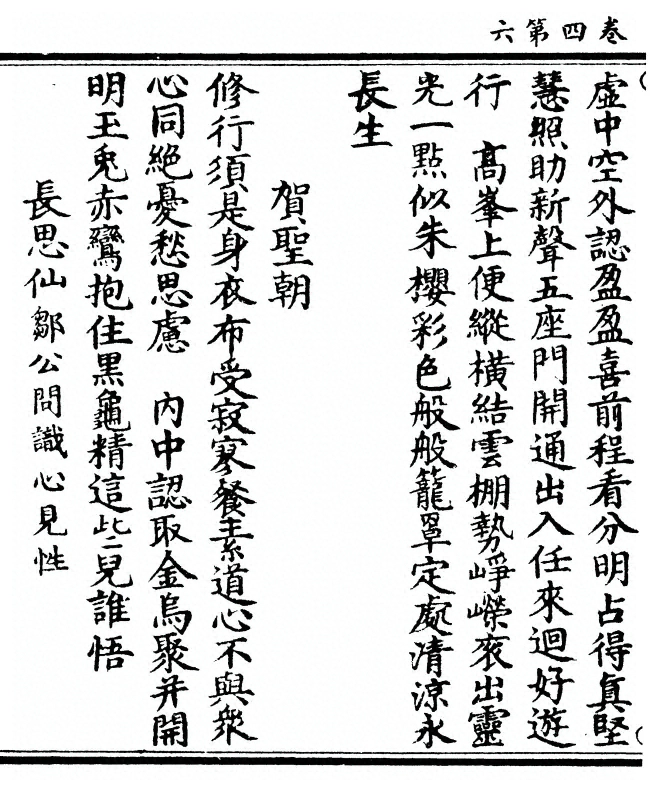 卷四第六
虛中空外認盈盈喜前程看分明占得眞堅
慧照助新聲五座門開通出入任來迴好遊
行　高峯上便縱橫結雲棚勢崢嶸衮出靈
光一點似朱櫻彩色般般籠罩定處清涼永
長生
賀聖朝
修行須是身衣布受寂寥餐素道心不與衆
心同絕憂愁思慮　內中認取金烏聚并開
明玉兔赤鸞抱住黑龜精這些兒誰悟
長思仙鄒公問識心見性